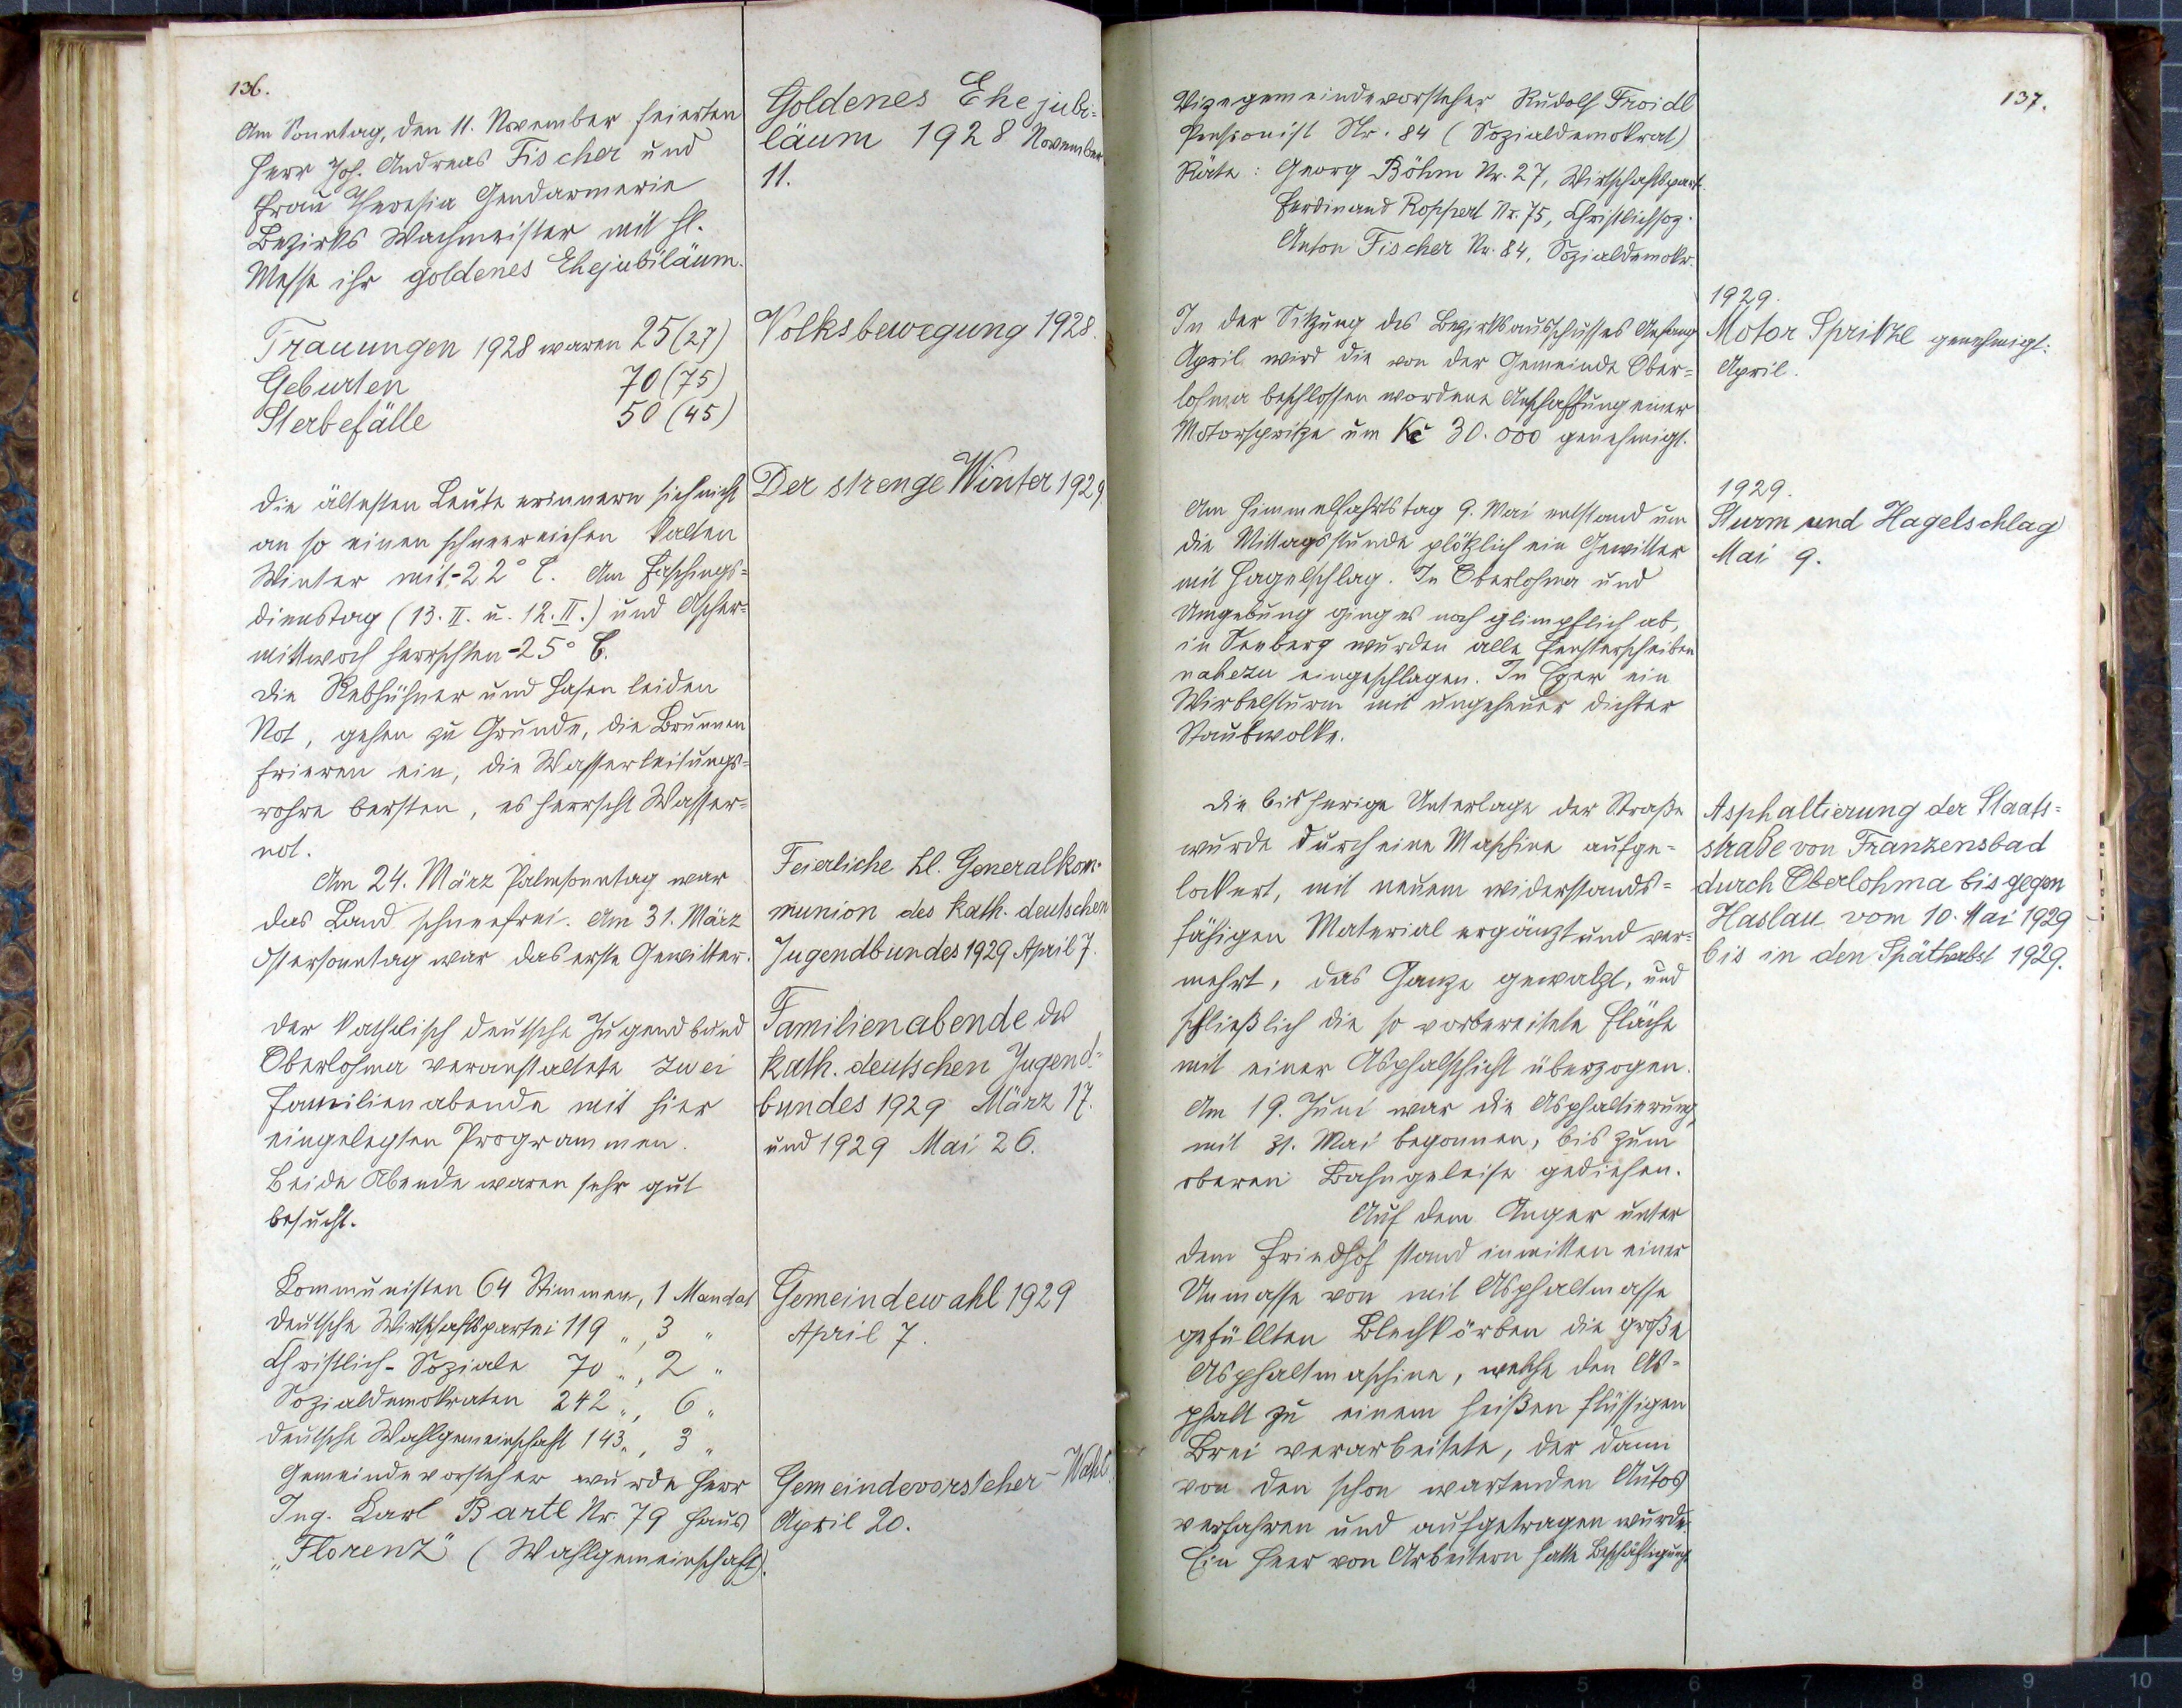 136.
Am Sonntag, den 11. November feierten
Herr Joh. Andreas Fischer und
Frau Theresia Gendarmerie
Bezirks Wachmeister mit hl.
Messe ihr goldenes Ehejubiläum.
Goldenes Ehejubi-
läum 1928 November
11.
Trauungen 1928 waren 25 (27)
Geburten 70 (75)
Sterbefälle 50 (45)
Volksbewegung 1928.
Die ältesten Leute erinnern sich nicht
an so einen schneereichen kalten
Winter mit -22° C. Am Faschings=
dienstag (13. II. u. 12. II.) und Ascher-
mittwoch herrschten -25° C.
Die Rebhühner und Hasen leiden
Not, gehen zu Grunde, die Brunnen
frieren ein, die Wasserleitungs=
rohre bersten, es herrscht Wasser=
not.
Der strenge Winter 1929.
Am 24. März Palmsonntag war
das Land schneefrei. Am 31. März
Ostersonntag war das erste Gewitter.
Feierliche hl. Generalkom-
munion des kath. deutschen
Jugendbundes 1929 April 7.
Der katholisch deutsche Jugendbund
Oberlohma veranstaltete zwei
Familienabende mit hier
eingelegten Programmen.
Beide Abende waren sehr gut
besucht.
Familienabende des
kath. deutschen Jugend=
bundes 1929 März 17.
und 1929 Mai 26.
Kommunisten 64 Stimmen, 1 Mandat
Deutsche Wirtschaftspartei 119 „ , 3 „
Christlich-Soziale 70 „ , 2 „
Sozialdemokraten 242 „ , 6 „
Deutsche Wahlgemeinschaft 143 „ , 3 „
Gemeindewahl 1929
April 7.
Gemeindevorsteher wurde Herr
Ing. Karl Bartl Nr. 79 Haus
„Florenz" (Wahlgemeinschaft).
Gemeindevorsteher-Wahl.
April 20.
137.
Vizegemeindevorsteher Rudolf Froidl
Pensionist Nr. 84 (Sozialdemokrat)
Räte: Georg Böhm Nr. 27, Wirtschaftspart.
Ferdinand Roppert Nr. 75, Christlichsoz.
Anton Fischer Nr. 84, Sozialdemokr.
In der Sitzung des Bezirksausschusses Anfang
April wird die von der Gemeinde Ober=
lohma beschlossen wordene Anschaffung einer
Motorspritze um Kč 30.000 genehmigt.
1929.
Motor Spritze genehmigt:
April.
Am Himmelfahrtstag 9. Mai entstand um
die Mittagsstunde plötzlich ein Gewitter
mit Hagelschlag. In Oberlohma und
Umgebung ging es noch glimpflich ab,
in Seeberg wurden alle Fensterscheiben
nahezu eingeschlagen. In Eger ein
Wirbelsturm mit ungeheuer dichter
Staubwolke.
1929.
Sturm und Hagelschlag
Mai 9.
Die bisherige Unterlage der Straße
wurde durch eine Maschine aufge=
lockert, mit neuem widerstands=
fähigen Material ergänzt und ver=
mehrt, das Ganze gewalzt, und
schließlich die so vorbereitete Fläche
mit einer Asphaltschicht überzogen.
Am 19. Juni war die Asphaltierung,
mit 31. Mai begonnen, bis zum
oberen Bahngeleise gediehen.
Auf dem Anger unter
dem Friedhof stand inmitten einer
Unmasse von mit Asphaltmasse
gefüllten Blechkörben die große
Asphaltmaschine, welche den As-
phalt zu einem heißen flüssigen
Brei verarbeitete, der dann
von den schon wartenden Autos
verfahren und aufgetragen wurde.
Ein Heer von Arbeitern hatte Beschäftigung.
Asphaltierung der Staats=
straße von Franzensbad
durch Oberlohma bis gegen
Haslau vom 10. Mai 1929
bis in den Spätherbst 1929.